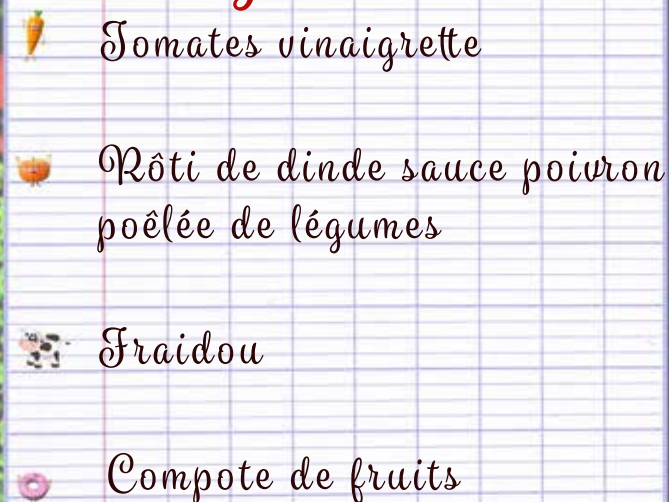 Tomates vinaigrette
Rôti de dinde sauce poivron
poêlée de légumes
Fraidou
Compote de fruits